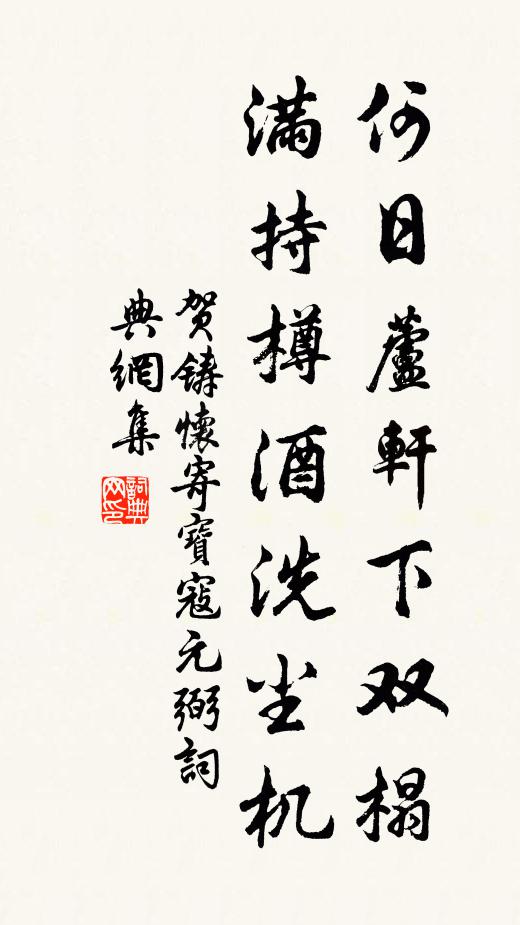 何日蘆軒下双榻
满持樽酒洗尘机
贺鑄懷寄寶寇元弼詞
典網集
詞典
网印